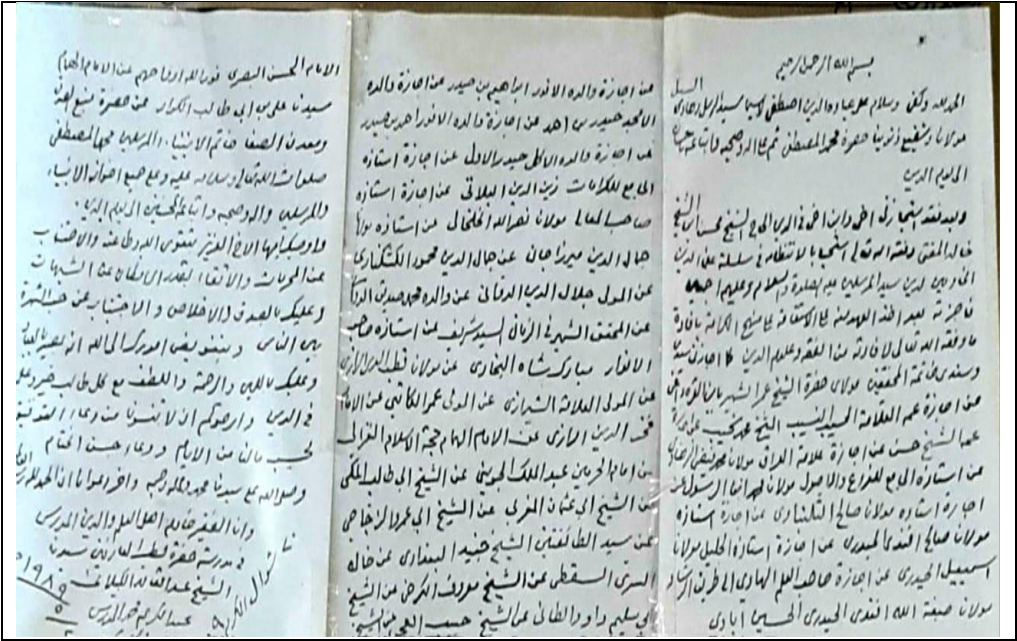 بسم الله الرحمن الرحيم
الحمد لله وكفى وسلام على عباده الذين اصطفى لاسيما سيد الرسل
مولانا وشفيع ذنوبنا حضرة محمد المصطفى ثم على اله وصحبه واتباعه
الى يوم الدين
وبعد فقد استجازني اخي وابن اخي في الدين الحاج الشيخ محسن ابن الشيخ
خالد المفتي وفقه الله تعالى استجابا بالانتظام في سلسلة علماء الدين
لدين سيد المرسلين عليه الصلاة والسلام وعليهم اجمعين
فاجزته بعد اخذ العهد منه على الاستقامة على منهج الكرامة بافادة
ما وفقه الله تعالى لافادته من الفقه وعلوم الدين كما اجازني سيدي
وسندي خاتمة المحققين مولاي حضرة الشيخ عمر الشهير بابن القره داغي
عن اجازة عمه العلامة الحسيب النسيب الشيخ محمد نجيب عن اجازة
عمه الشيخ حسن عن اجازة علامة العراق مولانا محمد فيضي الزهاوي
عن استاذه الجامع للفروع والاصول مولانا محمد ابن الرسول عن
اجازة استاذه مولانا صالح عن اجازة استاذه
مولانا صالح افندي الحيدري عن اجازة استاذه الجليل مولانا
اسمعيل الحيدري عن اجازة صاحب العلم الهادي الى طريق الرشاد
مولانا صبغة الله افندي الحيدري الحسين ابادي
عن اجازة والده الانور ابراهيم بن حيدر عن اجازة والده
الامجد حيدر بن احمد عن اجازة والده الانور احمد بن حيدر
عن اجازة والده الاكمل حيدر الاول عن اجازة استاذه
الجامع للكرامات زين الدين البلاتي عن اجازة استاذه
صاحب المعالي مولانا نصر الله الخلخالي عن استاذه مولانا
جمال الدين ميرزا جان عن جمال الدين محمود
عن المولى جلال الدين الدواني عن والده محمد صديق
عن المحقق الشهير في الزماني السيد شريف عن استاذه صاحب
الانوار مبارك شاه البخاري عن مولانا قطب الدين الرازي
عن المولى العلامة الشيرازي عن المولى عمر الكاتبي عن الامام
فخر الدين الرازي عن الامام الهمام حجة الاسلام الغزالي
عن امام الحرمين عبد الملك الجويني عن الشيخ ابي طالب المكي
عن الشيخ ابي عثمان المغربي عن الشيخ ابي عمرو الزجاجي
عن سيد الطائفتين الشيخ جنيد البغدادي عن خاله
السري السقطي عن الشيخ معروف الكرخي عن الشيخ
ابي سليم داود الطائي عن الشيخ حبيب العجمي عن الشيخ
الامام الحسن البصري نور الله ارواحهم عن الامام الهمام
سيدنا علي بن ابي طالب الكرار عن حضرة منبع الهدى
ومعدن الصفا خاتم الانبياء والمرسلين محمد المصطفى
صلوات الله تعالى وسلامه عليه وعلى جميع اخوانه الانبياء
والمرسلين واله وصحبه واتباعهم الى يوم الدين.
واوصيك ايها الاخ العزيز بتقوى الله وطاعته والاجتناب
عن المحرمات والاتقاء بقدر الامكان عن الشبهات
وعليك بالصدق والاخلاص والاجتناب عن حب الشهرة
بين الناس وبتفويض امورك الى الله انه بصير بالعباد
وعليك باللين والرحمة واللطف مع كل طالب خير وعلم
في الدين وارجوكم ان لا تنسونا من دعاء التوفيق
لحسب ما بان من الايام ودعاء حسن الختام
وصلى الله على سيدنا محمد واله وصحبه واخر دعوانا ان الحمد لله رب
وانا الفقير خادم اهل العلم والدين المدرس
في مدرسة حضرة قطب العارفين سيدنا
الشيخ عبد القادر الكيلاني
عبد الكريم محمد المدرس
شوال
١٩٨٩